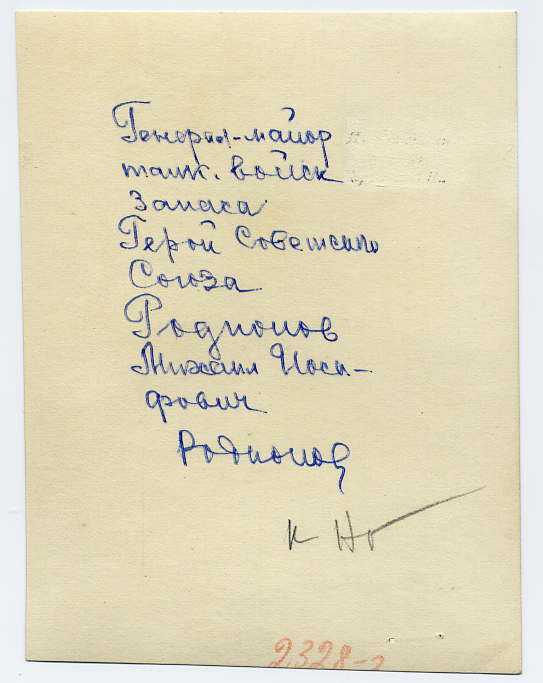 Генерал-майор
танк. войск
запаса
Герой Советского
Союза
Родионов
Михаил Иоси-
фович
Родионов
к
2328-2